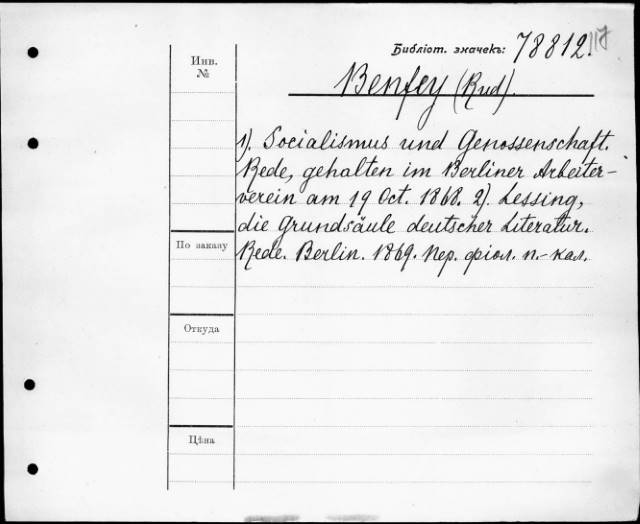 Библіот. значекъ: 78812.
Инв.
№
Benfey (Rud).
1). Socialismus und Genossenschaft.
Rede, gehalten im Berliner Arbeiter-
verein am 19 Oct. 1868. 2). Lessing,
die Grundsäule deutscher Literatur.
По заказу
Rede. Berlin. 1869. Пер. фіол. п.-кал.
Откуда
Цѣна